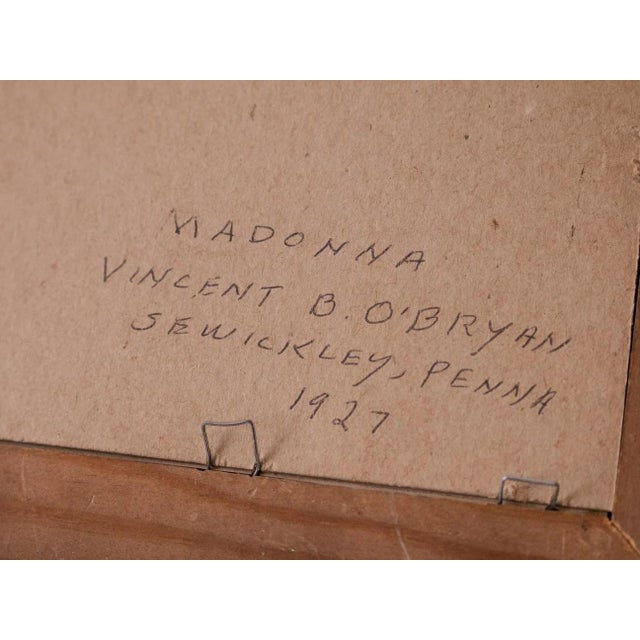 MADONNA
VINCENT B. O'BRYAN
SEWICKLEY, PENNA
1927